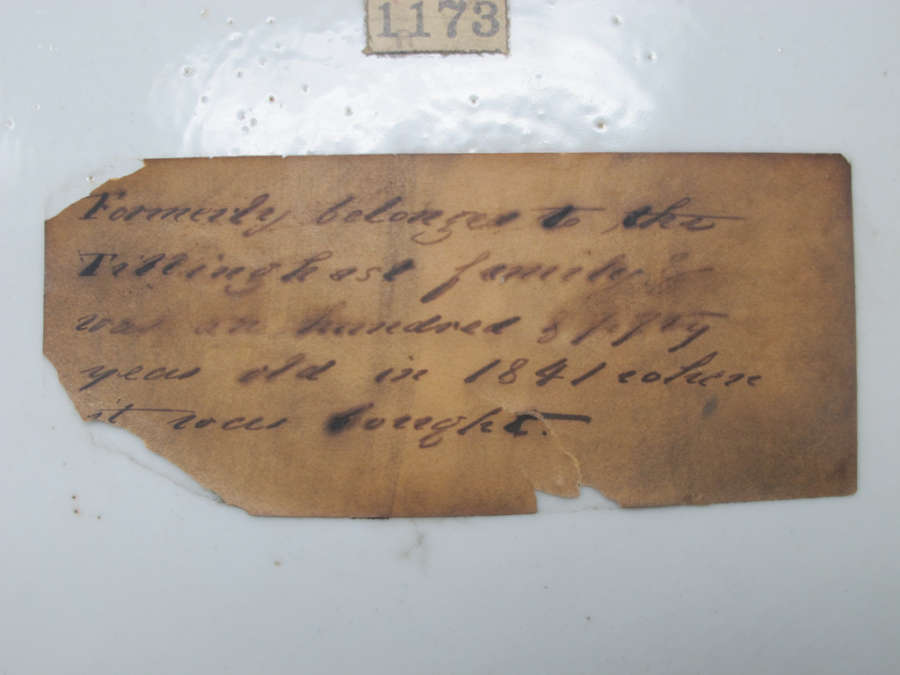 1173
Formerly belonged to the
Tillinghast family &
was an hundred & fifty
years old in 1841 when
it was bought.